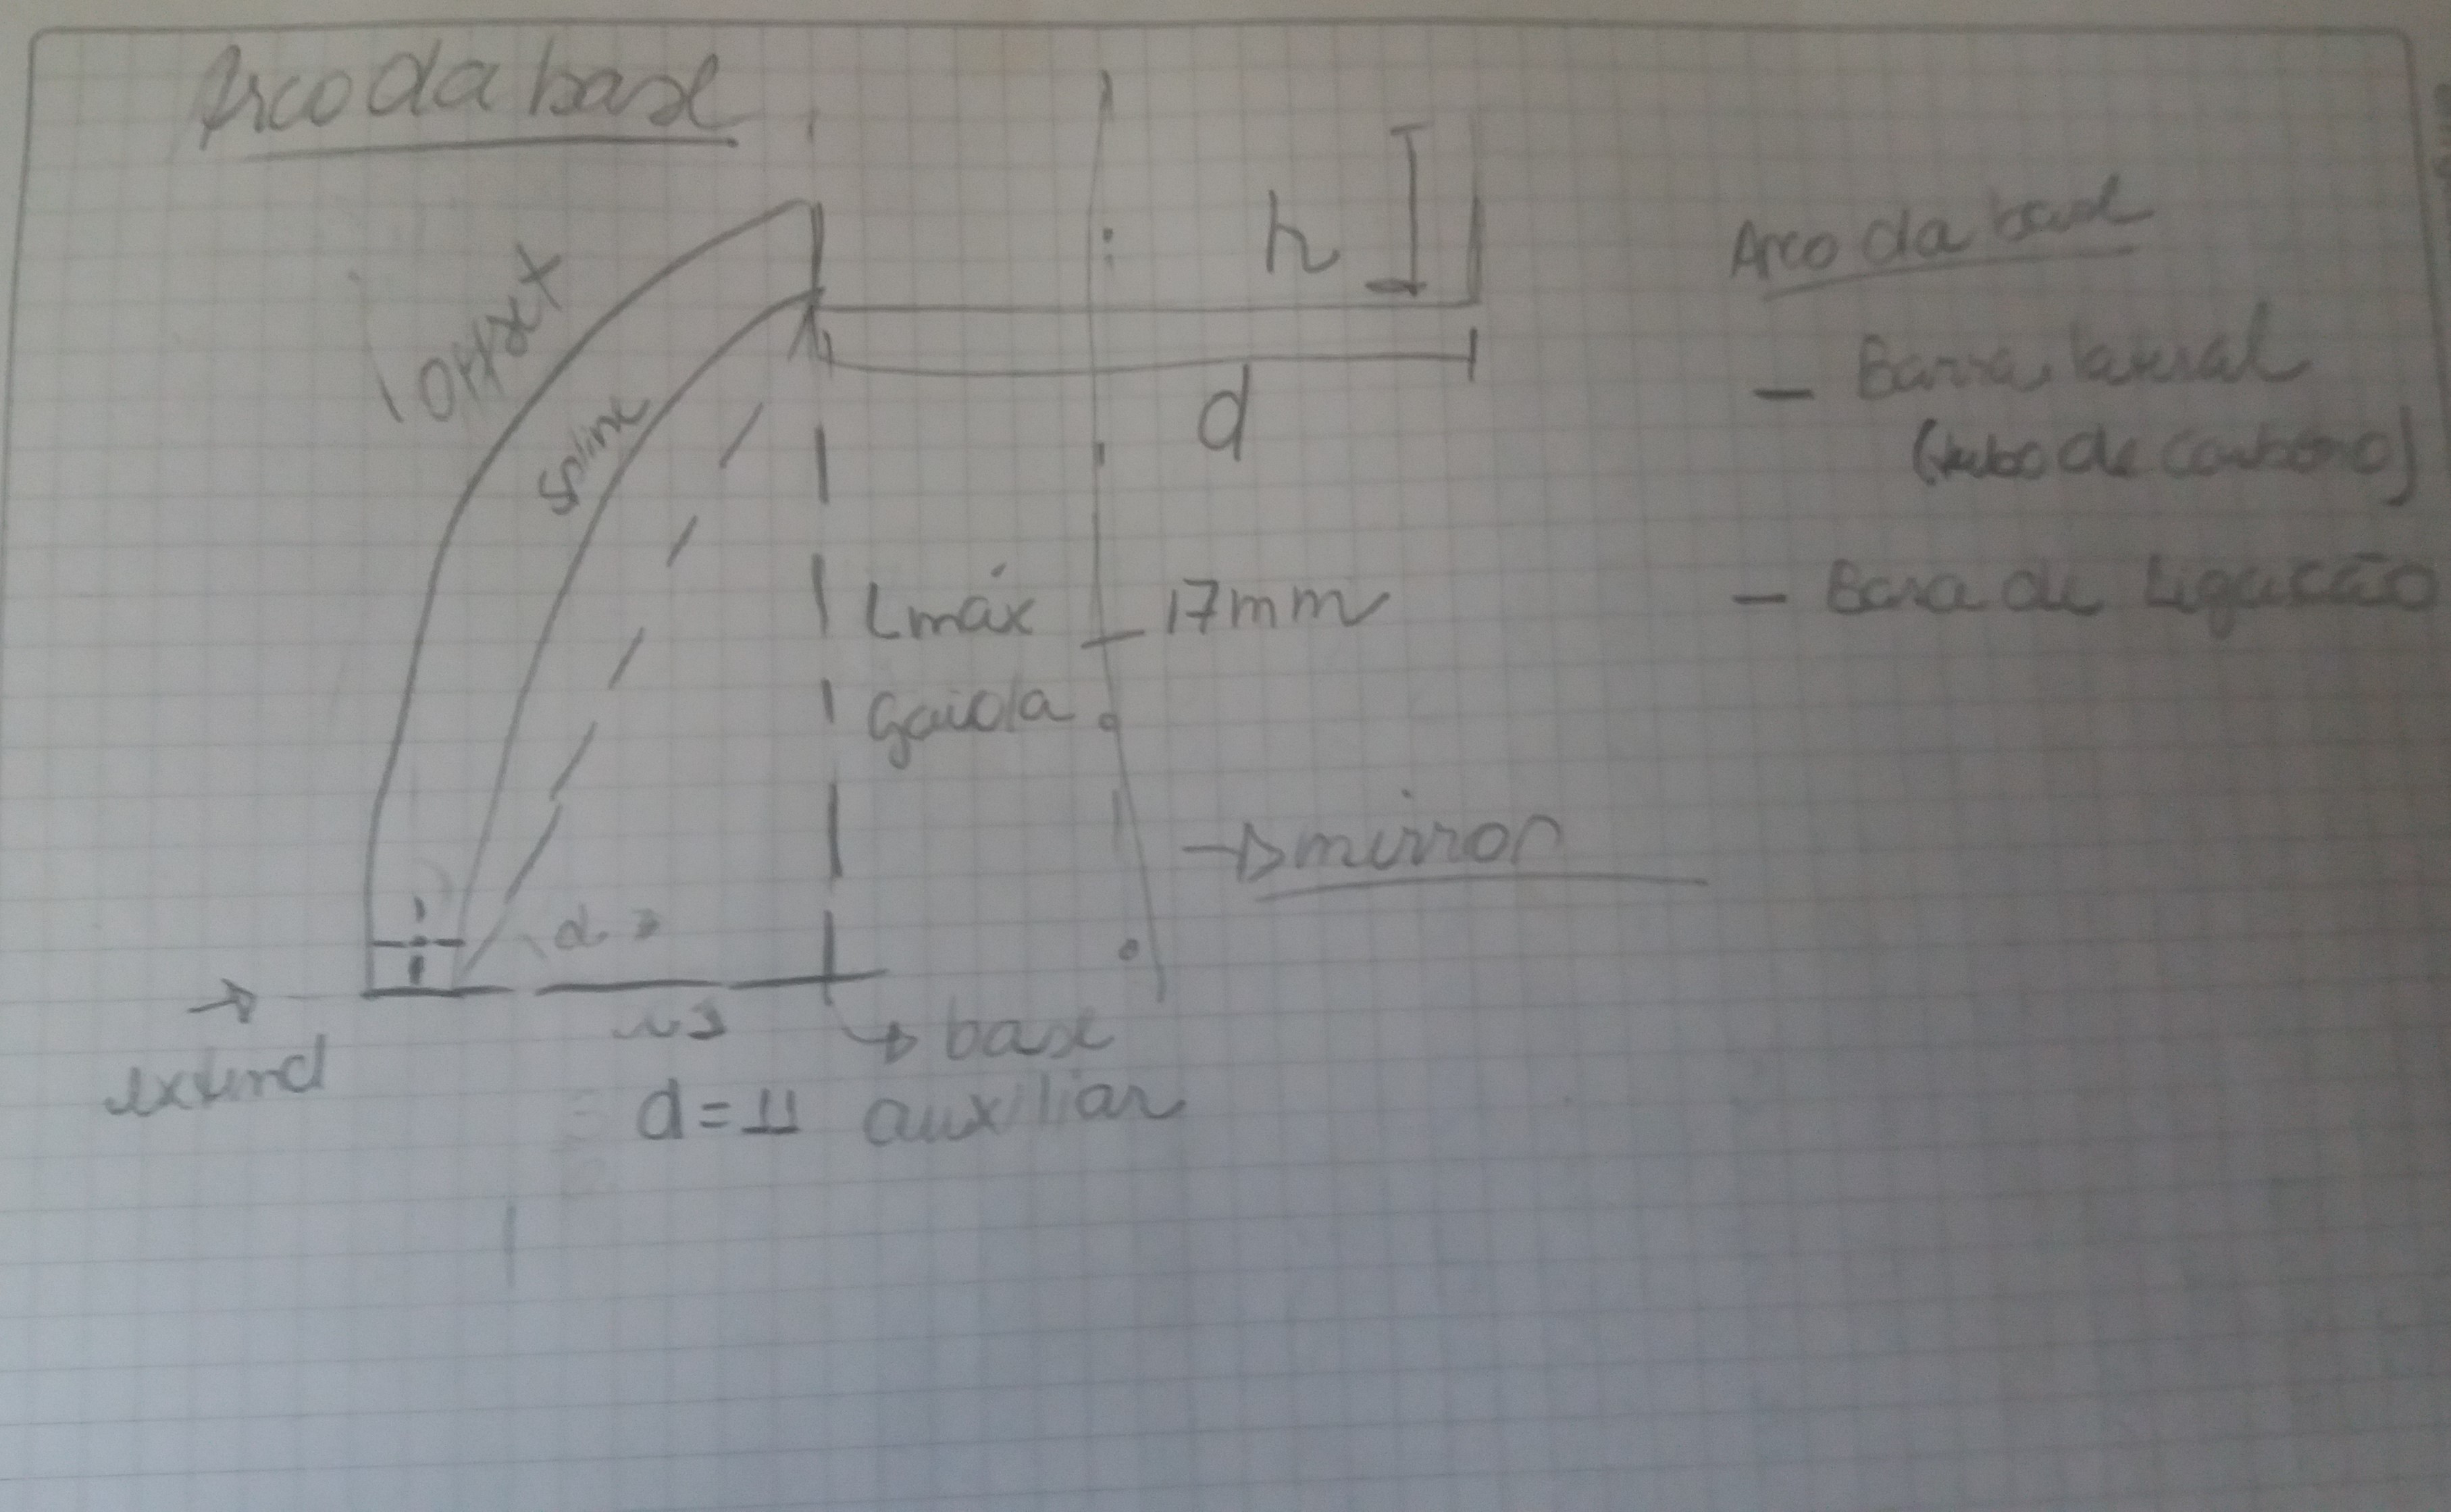 Arco da base
h
Offset
Spline
d
Lmáx
17mm
Gaiola
→ mirror
→
extend
→ base
d = 11 auxiliar
Arco da base
- Barra lateral
(tubo de carbono)
- Barra de Ligação